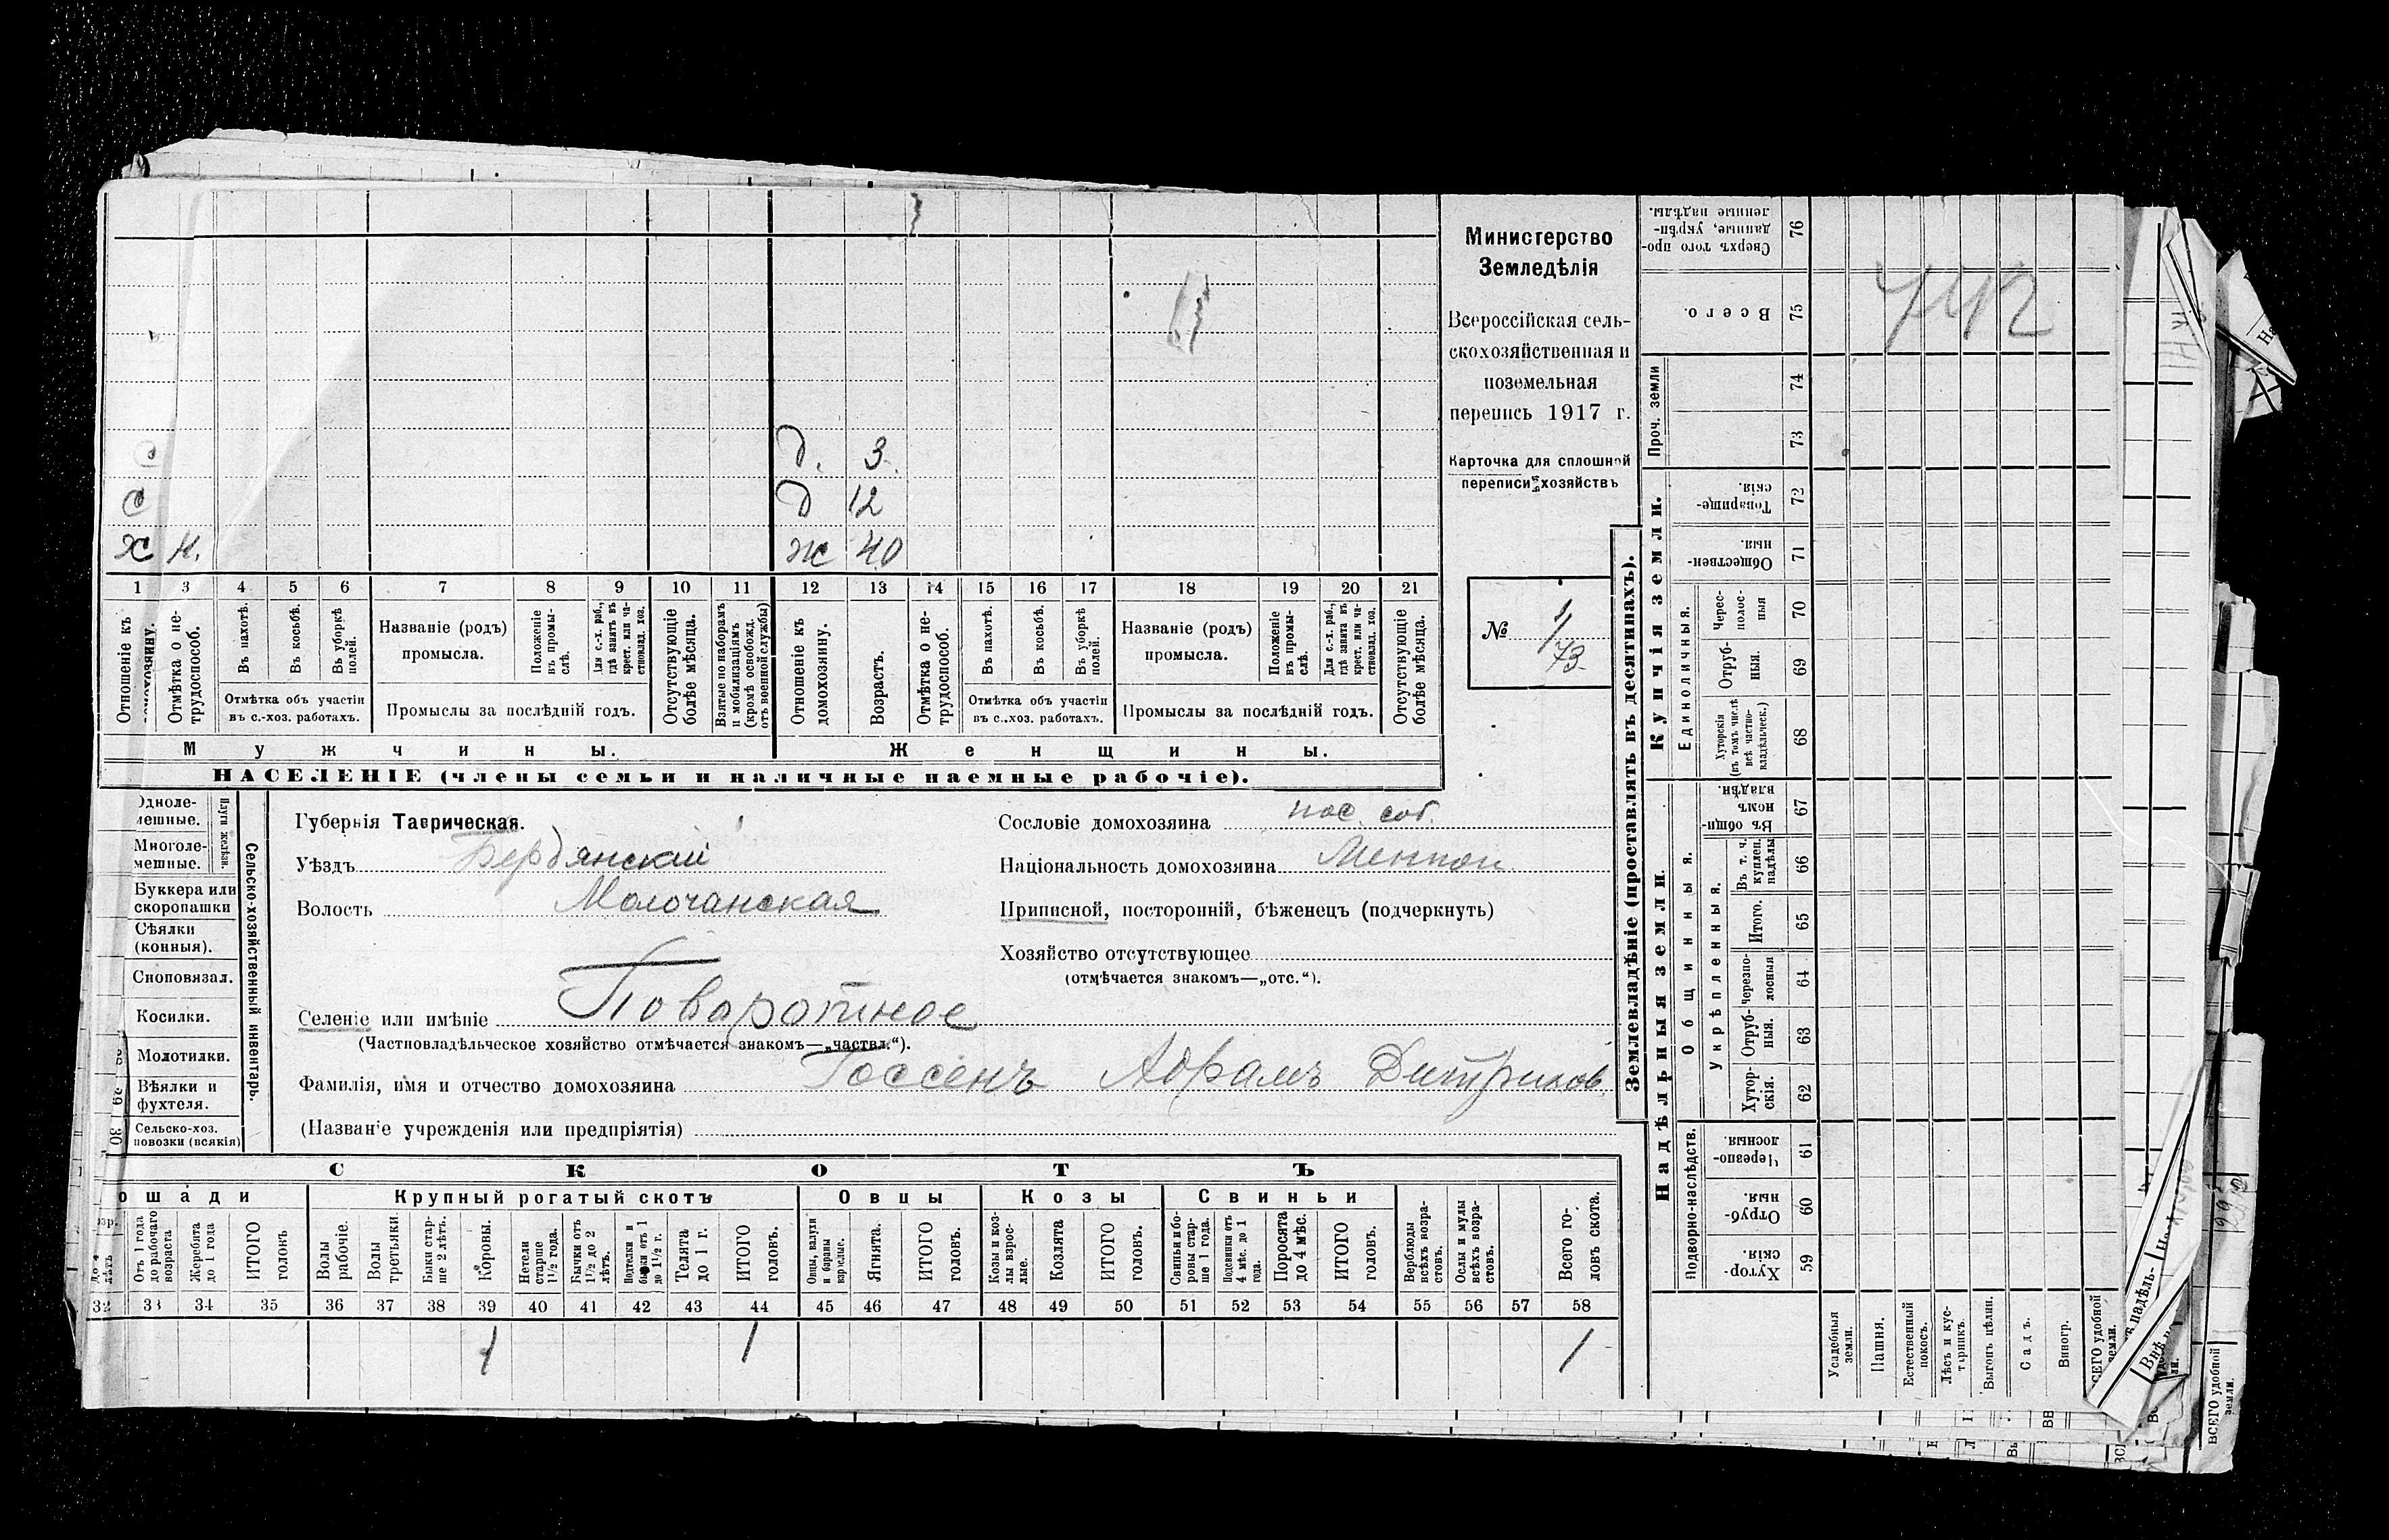 д. 3.
с
с д 12
х н. ж 40
1 3 4 5 6 7 8 9 10 11 12 13 14 15 16 17 18 19 20 21
Отношеніе къ домохозяину.
Отмѣтка о не-
трудоспособ.
Въ пахотѣ.
Въ косьбѣ.
Въ уборкѣ
полей.
Отмѣтка объ участіи
въ с.-хоз. работахъ.
Названіе (родъ)
промысла.
Положеніе
въ промы-
слѣ.
Для с.-х. раб.,
гдѣ занятъ въ
крест. или ча-
стновлад. хоз.
Промыслы за послѣдній годъ.
Отсутствующіе
болѣе мѣсяца.
Взятые по наборамъ
и мобилизаціямъ
(кромѣ освобожд.
отъ военной службы)
Отношеніе къ
домохозяину.
Возрастъ.
Отмѣтка о не-
трудоспособ.
Въ пахотѣ.
Въ косьбѣ.
Въ уборкѣ
полей.
Отмѣтка объ участіи
въ с.-хоз. работахъ.
Названіе (родъ)
промысла.
Положеніе
въ промы-
слѣ.
Для с.-х. раб.,
гдѣ занята въ
крест. или ча-
стновлад. хоз.
Промыслы за послѣдній годъ.
Отсутствующіе
болѣе мѣсяца.
Мужчины. Женщины.
НАСЕЛЕНІЕ (члены семьи и наличные наемные рабочіе).
Министерство
Земледѣлія
Всероссійская сель-
скохозяйственная и
поземельная
перепись 1917 г.
Карточка для сплошной
переписи хозяйствъ
№ 1/73.
Одноле-
мешные.
Многоле-
мешные.
Плуги желѣзн.
Буккера или
скоропашки
Сѣялки
(конныя).
Сноповязал.
Косилки.
Молотилки.
Вѣялки и
фухтеля.
Сельско-хоз.
повозки (всякія)
30
Сельско-хозяйственный инвентарь.
Губернія Таврическая.
Уѣздъ Бердянскій
Волость Молочанская
Селеніе или имѣніе Поваротное
(Частновладѣльческое хозяйство отмѣчается знакомъ—„частвл.“).
Фамилія, имя и отчество домохозяина Госсенъ Абрамъ Дитриховъ
(Названіе учрежденія или предпріятія)
Сословіе домохозяина пос. соб.
Національность домохозяина Меннон.
Приписной, посторонній, бѣженецъ (подчеркнуть)
Хозяйство отсутствующее
(отмѣчается знакомъ—„отс.“).
СКОТЪ
ошади Крупный рогатый скотъ Овцы Козы Свиньи
Отъ 1 года
до рабочаго
возраста
Жеребята
до 1 года
ИТОГО
головъ
Волы
рабочіе.
Волы
третьяки.
Быки стар-
ше 2 лѣтъ.
Коровы.
Нетели
старше
1½ года.
Бычки отъ
1½ до 2
лѣтъ.
Подтелки и
бычки отъ 1
до 1½ г.
Телята
до 1 г.
ИТОГО
головъ.
Овцы, валухи
и бараны
взрослые.
Ягнята.
ИТОГО
головъ.
Козы и коз-
лы взрос-
лые.
Козлята
ИТОГО
головъ.
Свиньи и бо-
ровы стар-
ше 1 года.
Подсвинки отъ
4 мѣс. до 1
года.
Поросята
до 4 мѣс.
ИТОГО
головъ.
Верблюды
всѣхъ возра-
стовъ.
Ослы и мулы
всѣхъ возра-
стовъ.
Всего го-
ловъ скота.
32 33 34 35 36 37 38 39 40 41 42 43 44 45 46 47 48 49 50 51 52 53 54 55 56 57 58
1 1 1
Землевладѣніе (проставлять въ десятинахъ).
Надѣльныя земли.
Купчія земли.
Проч. земли
Подворно-наслѣдств.
Общинныя.
Укрѣпленныя.
Единоличныя.
Сверхъ того про-
данные, укрѣп-
ленные надѣлы.
76
Всего.
75
74
73
Товарище-
скія.
72
Обществен-
ныя.
71
Черес-
полос-
ныя
70
Отруб-
ныя.
69
Хуторскія
(въ томъ числѣ
всѣ частно-
владѣльческ.)
68
Въ общин-
номъ
владѣн.
67
Въ т. ч.
куплен.
надѣлы
66
Итого.
65
Черезпо-
лосныя
64
Отруб-
ныя.
63
Хутор-
скія.
62
Черезпо-
лосныя
61
Отруб-
ныя.
60
Хутор-
скія.
59
Усадебныя
земли.
Пашня.
Естественный
покосъ.
Лѣсъ и кус-
тарникъ.
Выгонъ цѣлин.
Садъ.
Виногр.
ВСЕГО удобной
земли.
ВСЕГО удобной
земли.